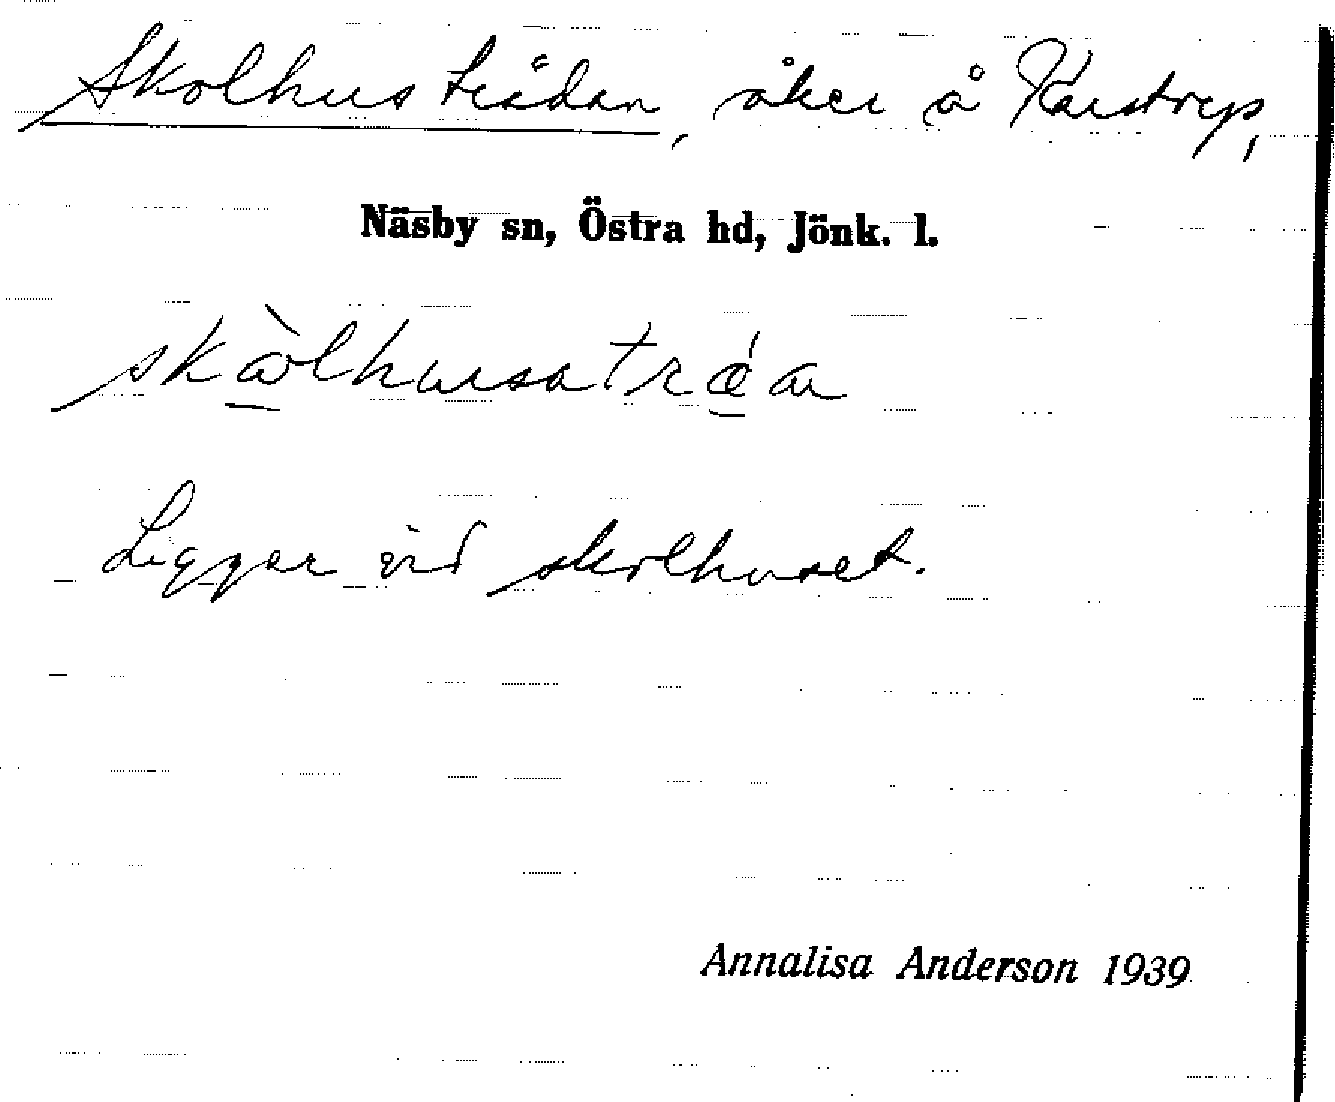 Skolhusträdan, åker å Karstorp,
Näsby sn, Östra hd, Jönk. l.
skòlhusatrǽa
Ligger vid skolhuset.
Annalisa Anderson 1939